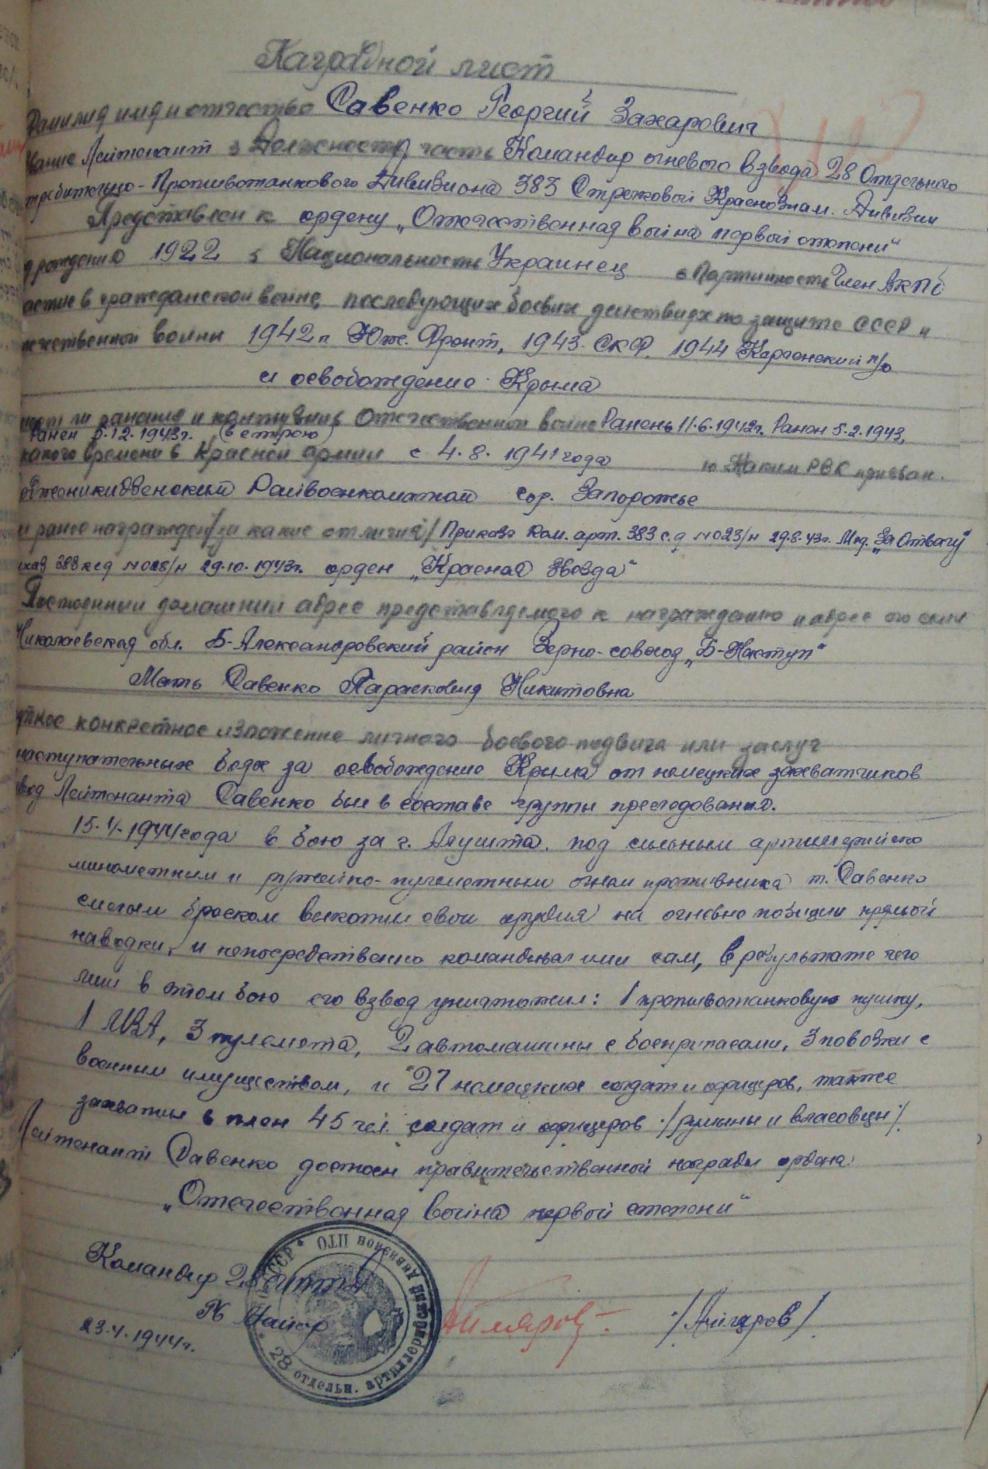 Наградной лист
Фамилия имя и отчество Савенко Георгий Захарович
Звание Лейтенант 3 Должность, часть Командир огневого взвода 28 Отдельного
требительно-Противотанкового Дивизиона 383 Стрелковой Краснознам. Дивизии
Представлен к ордену „Отечественная война первой степени“
рождения 1922 5 Национальность Украинец 6 Партийность Член ВКП/б
астие в гражданской войне, последующих боевых действиях по защите СССР и
чественной войны 1942 г. Юж. Фронт, 1943 СКФ. 1944 Керченский п/о
и освобождение Крыма
ли ранения и контузии в Отечественной войне Ранень 11.6.1942г. Ранен 5.2.1943,
Ранен 5.12.1943г. (в строю)
какого времени в Красной армии с 4.8.1941 года 10 Каким РВК призван.
Орджоникидзенский Райвоенкоматом гор. Запорожье
ранее награжден /за какие отличия/ Приказ Ком. арт. 383 с.д №023/н 29.8.43г. Мед. „За Отвагу“
каз 383 ксд №028/н 29.10.1943г. орден „Красная Звезда“
Постоянный домашний адрес представляемого к награждению и адрес его семи
Николаевская обл. Б-Александровский район Зерно-совхоз „Б-Наступ“
Мать Савенко Парасковия Никитовна
тное конкретное изложение личного боевого подвига или заслуг
наступательных боях за освобождение Крыма от немецких захватчиков
звод Лейтенанта Савенко был в составе группы преследования.
15.4.1944 года в бою за г. Алушта. под сильным артиллерийско
минометным и ружейно-пулеметным огнем противника т. Савенко
смелым броском выкатил свои орудия на огневые позиции прямой
наводки, и непосредственно командовал ими сам, в результате чего
лиш в этом бою его взвод уничтожил: 1 противотанковую пушку,
1 МЗА, 3 пулемета, 2 автомашины с боеприпасами, 3 повозки с
военным имуществом, и 27 немецких солдат и офицеров, также
захватил в плен 45 чел. солдат и офицеров /румыны и власовцы/.
Лейтенант Савенко достоен правительственной награды ордена
„Отечественная война первой степени“
Командир 28 оиптд
Майор /Айгаров/
23.4.1944г.
28 отдельн. артиллерийский дивизион ПТО СССР